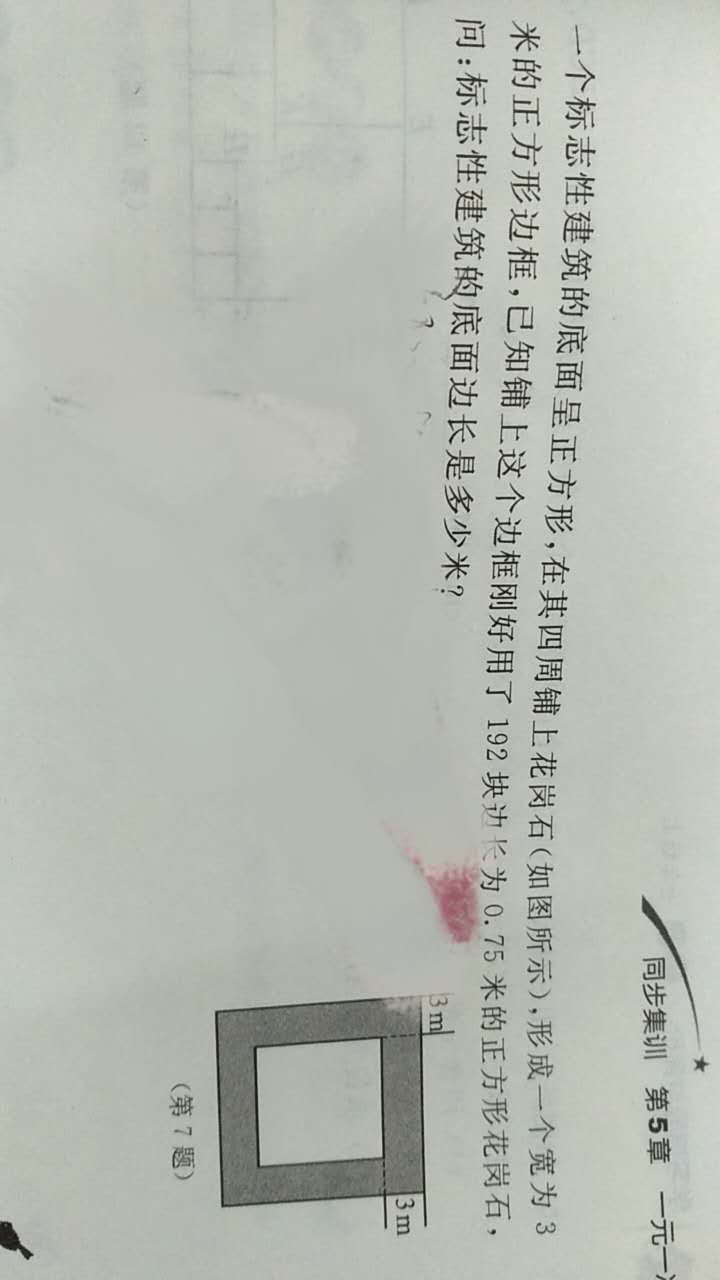 同步集训 第5章 一元一
一个标志性建筑的底面呈正方形,在其四周铺上花岗石(如图所示),形成一个宽为 3
米的正方形边框,已知铺上这个边框刚好用了 192 块边长为 0.75 米的正方形花岗石,
问:标志性建筑的底面边长是多少米?
3 m
3 m
(第 7 题)